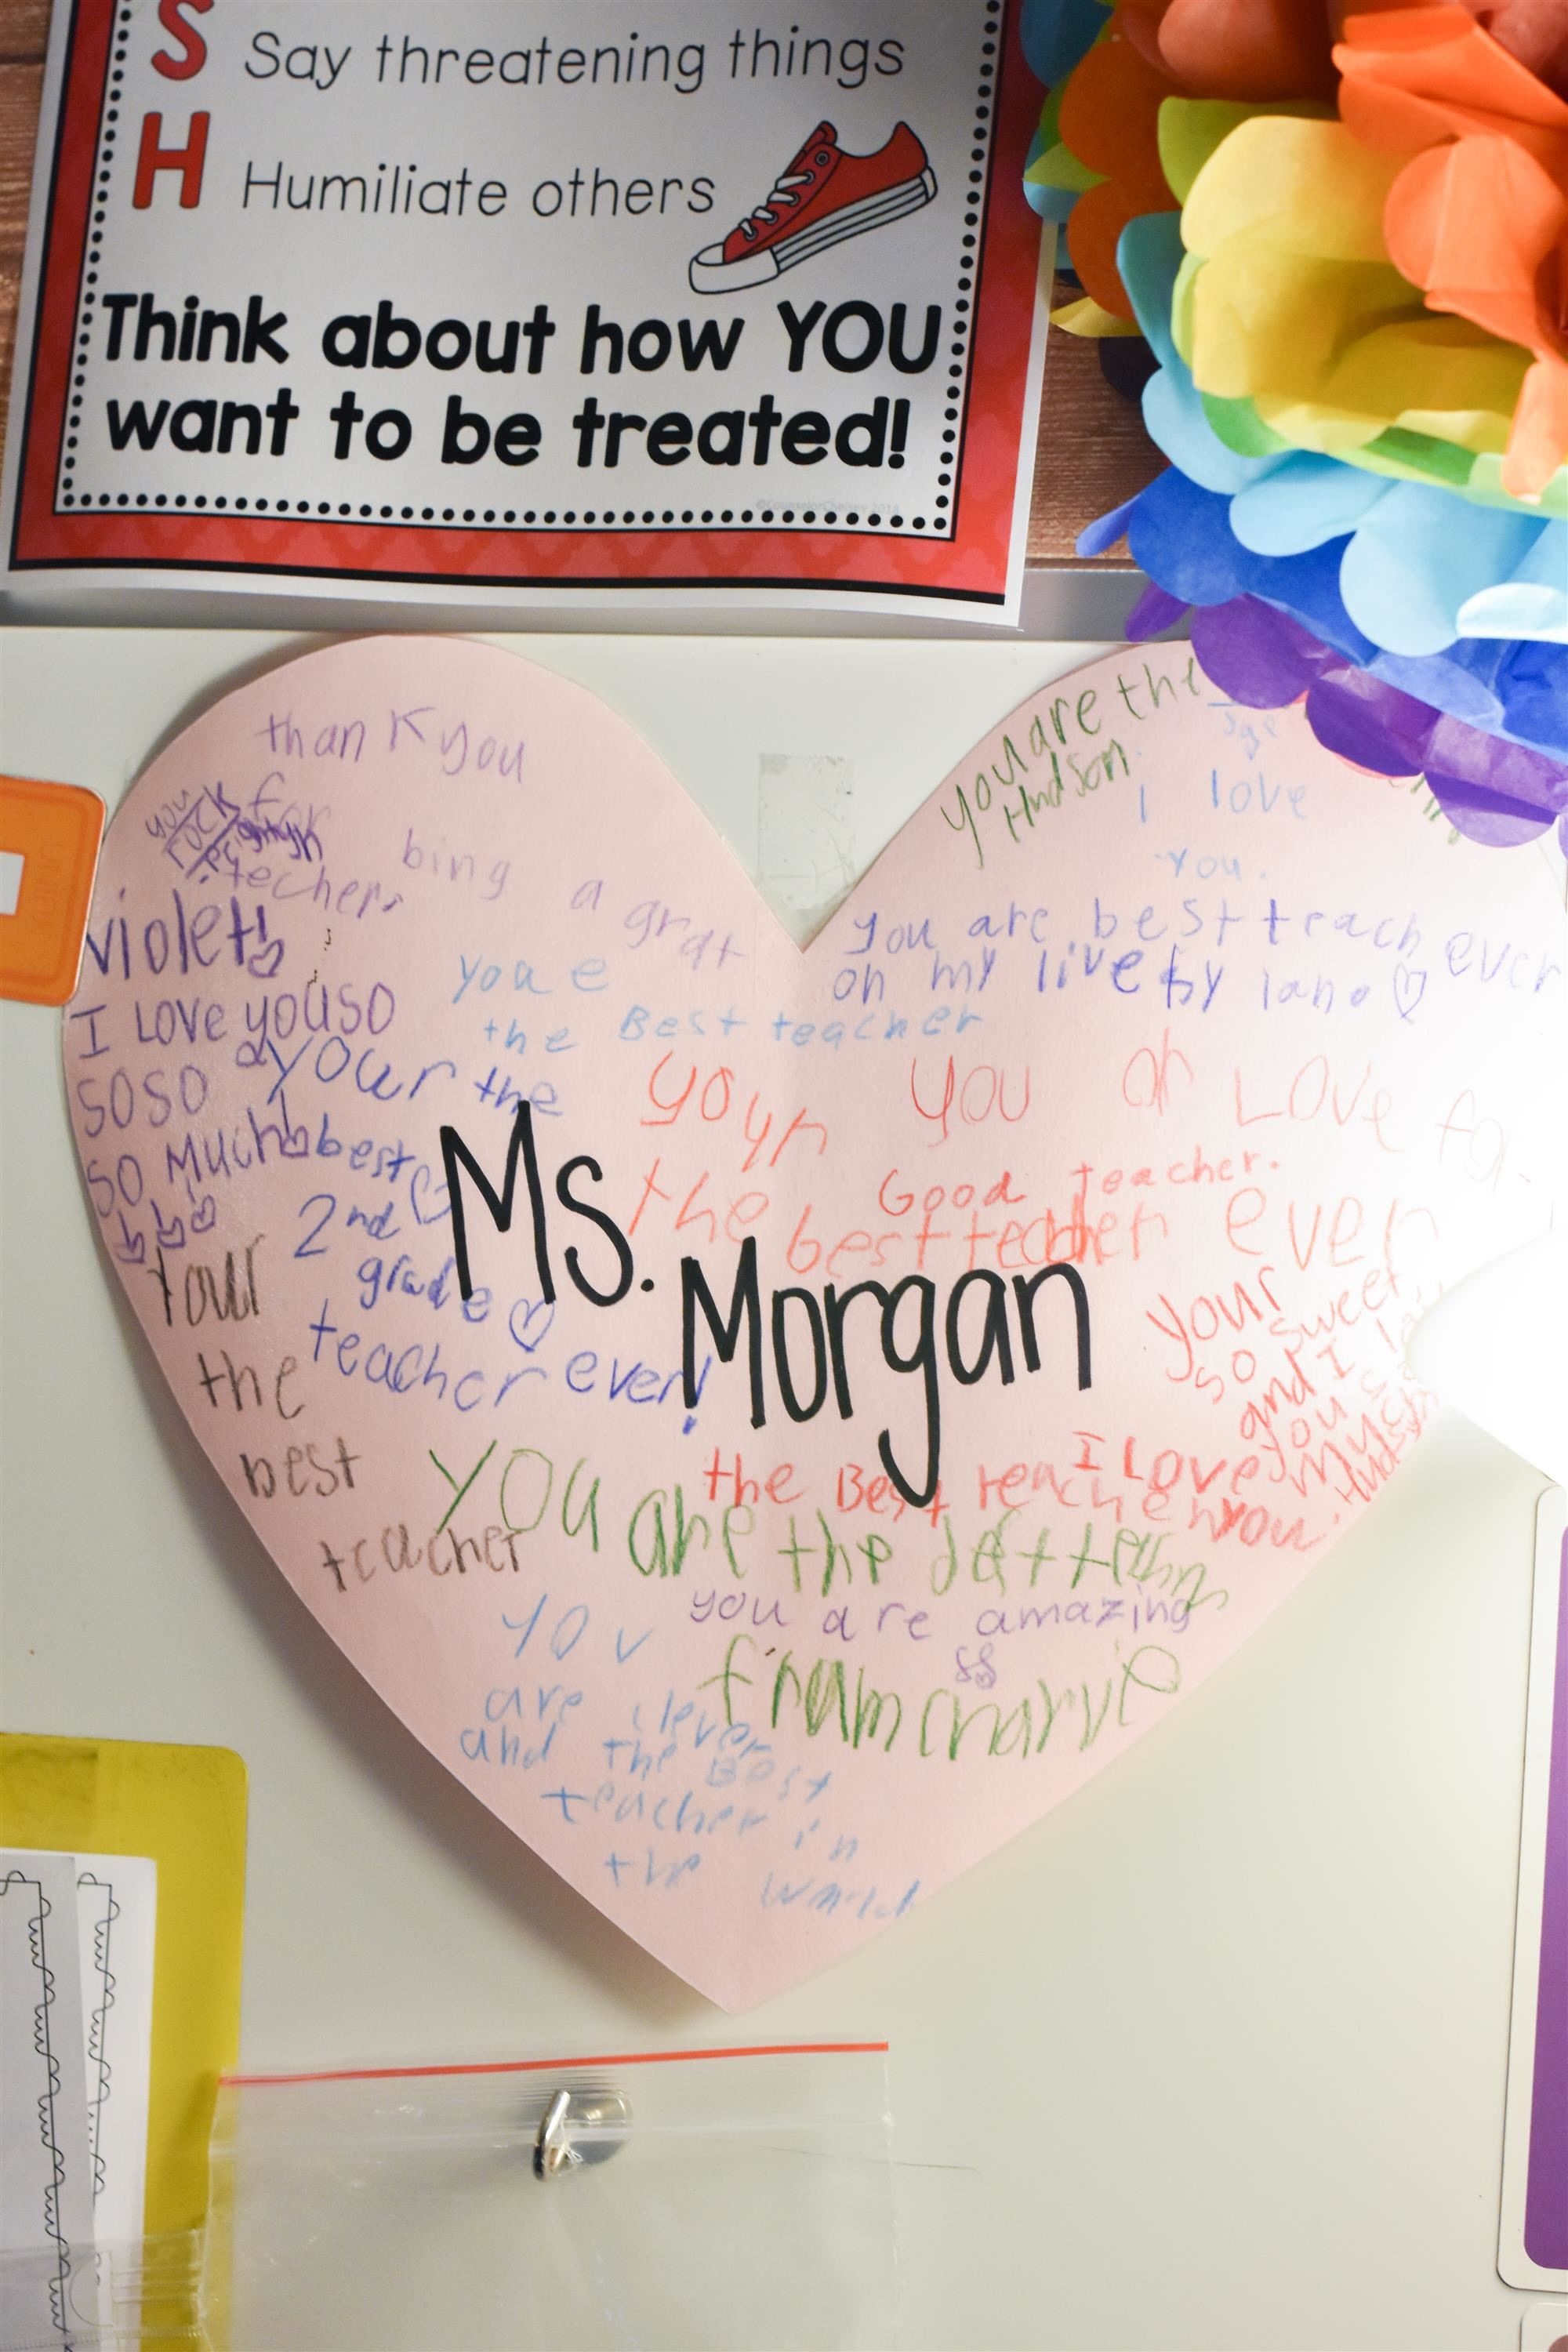 S Say threatening things
H Humiliate others
Think about how YOU
want to be treated!
thank you
for
bing a grat
techer
you
rock
violet!
I Love you so
so so
so much!
you are the
Hudson
I love
you.
you are best teach ever
on my live by lano
you a e
the Best teacher
your the
best
2nd
grade
teacher ever!
you
Love
Good teacher.
the best teacher ever
Ms.
Morgan
Your
the
best
teacher
your
so sweet
and I
you
I Love
you.
the Best teacher
you are the
you are amazing
fram
you
are clever
and the Best
teacher in
the